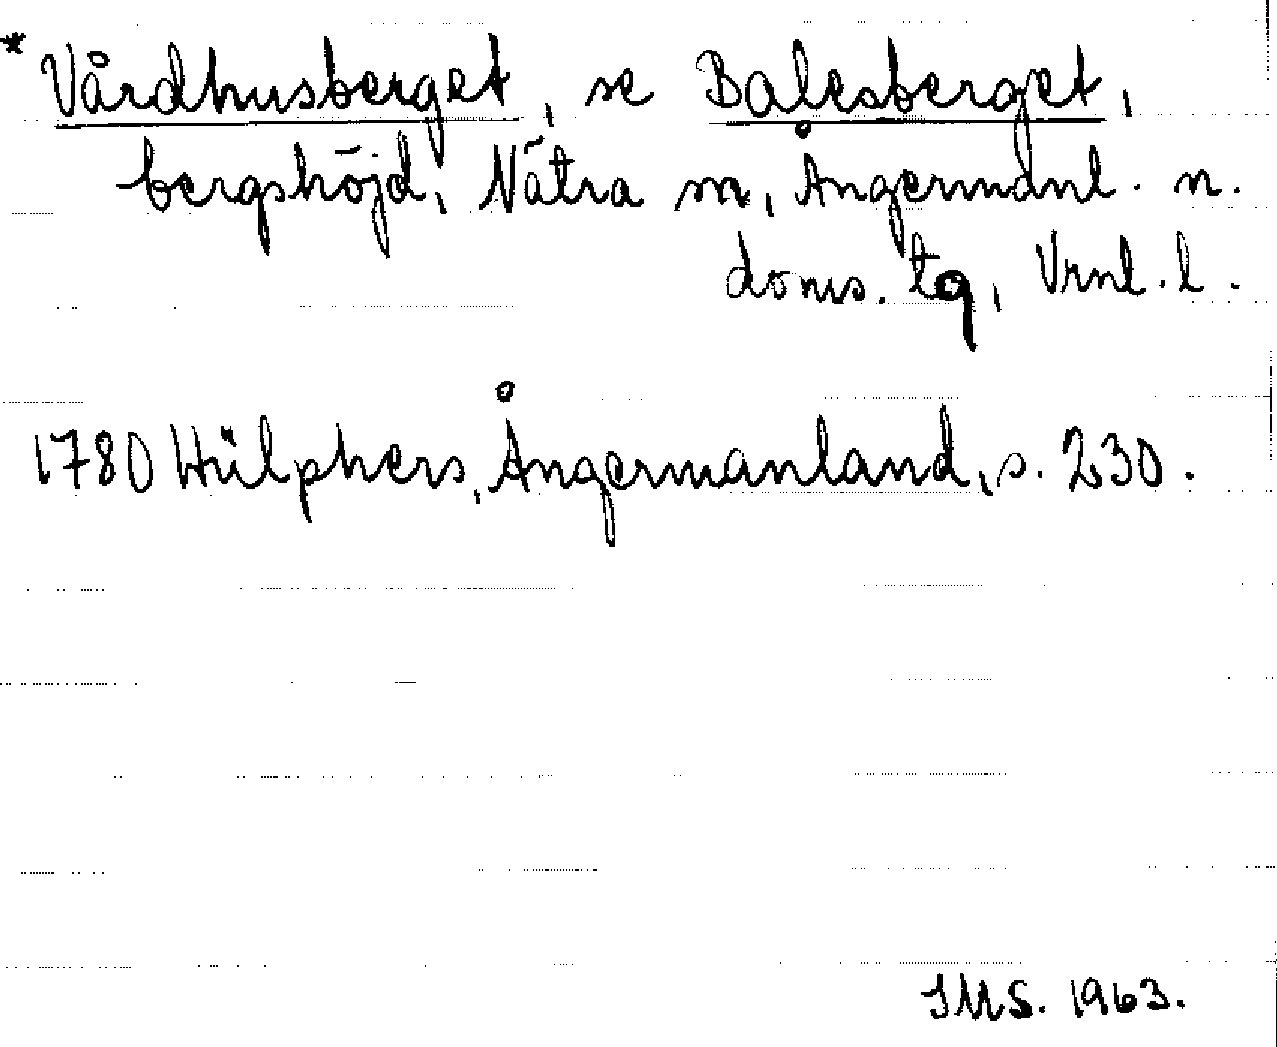 * Vårdhusberget, se Balesberget,
bergshöjd, Nätra sn, Ångermanl. n.
doms. tg, Vrnl. l.
1780 Hülphers, Ångermanland, s. 230.
IMS. 1963.